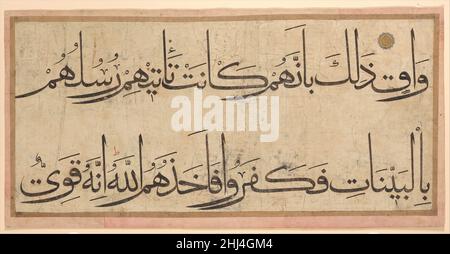 وَاقٍ ذَلِكَ بِأَنَّهُمْ كَانَتْ تَأْتِيهِمْ رُسُلُهُمْ
بِالْبَيِّنَاتِ فَكَفَرُوا فَأَخَذَهُمُ اللَّهُ إِنَّهُ قَوِيٌّ
2HJ4GM4